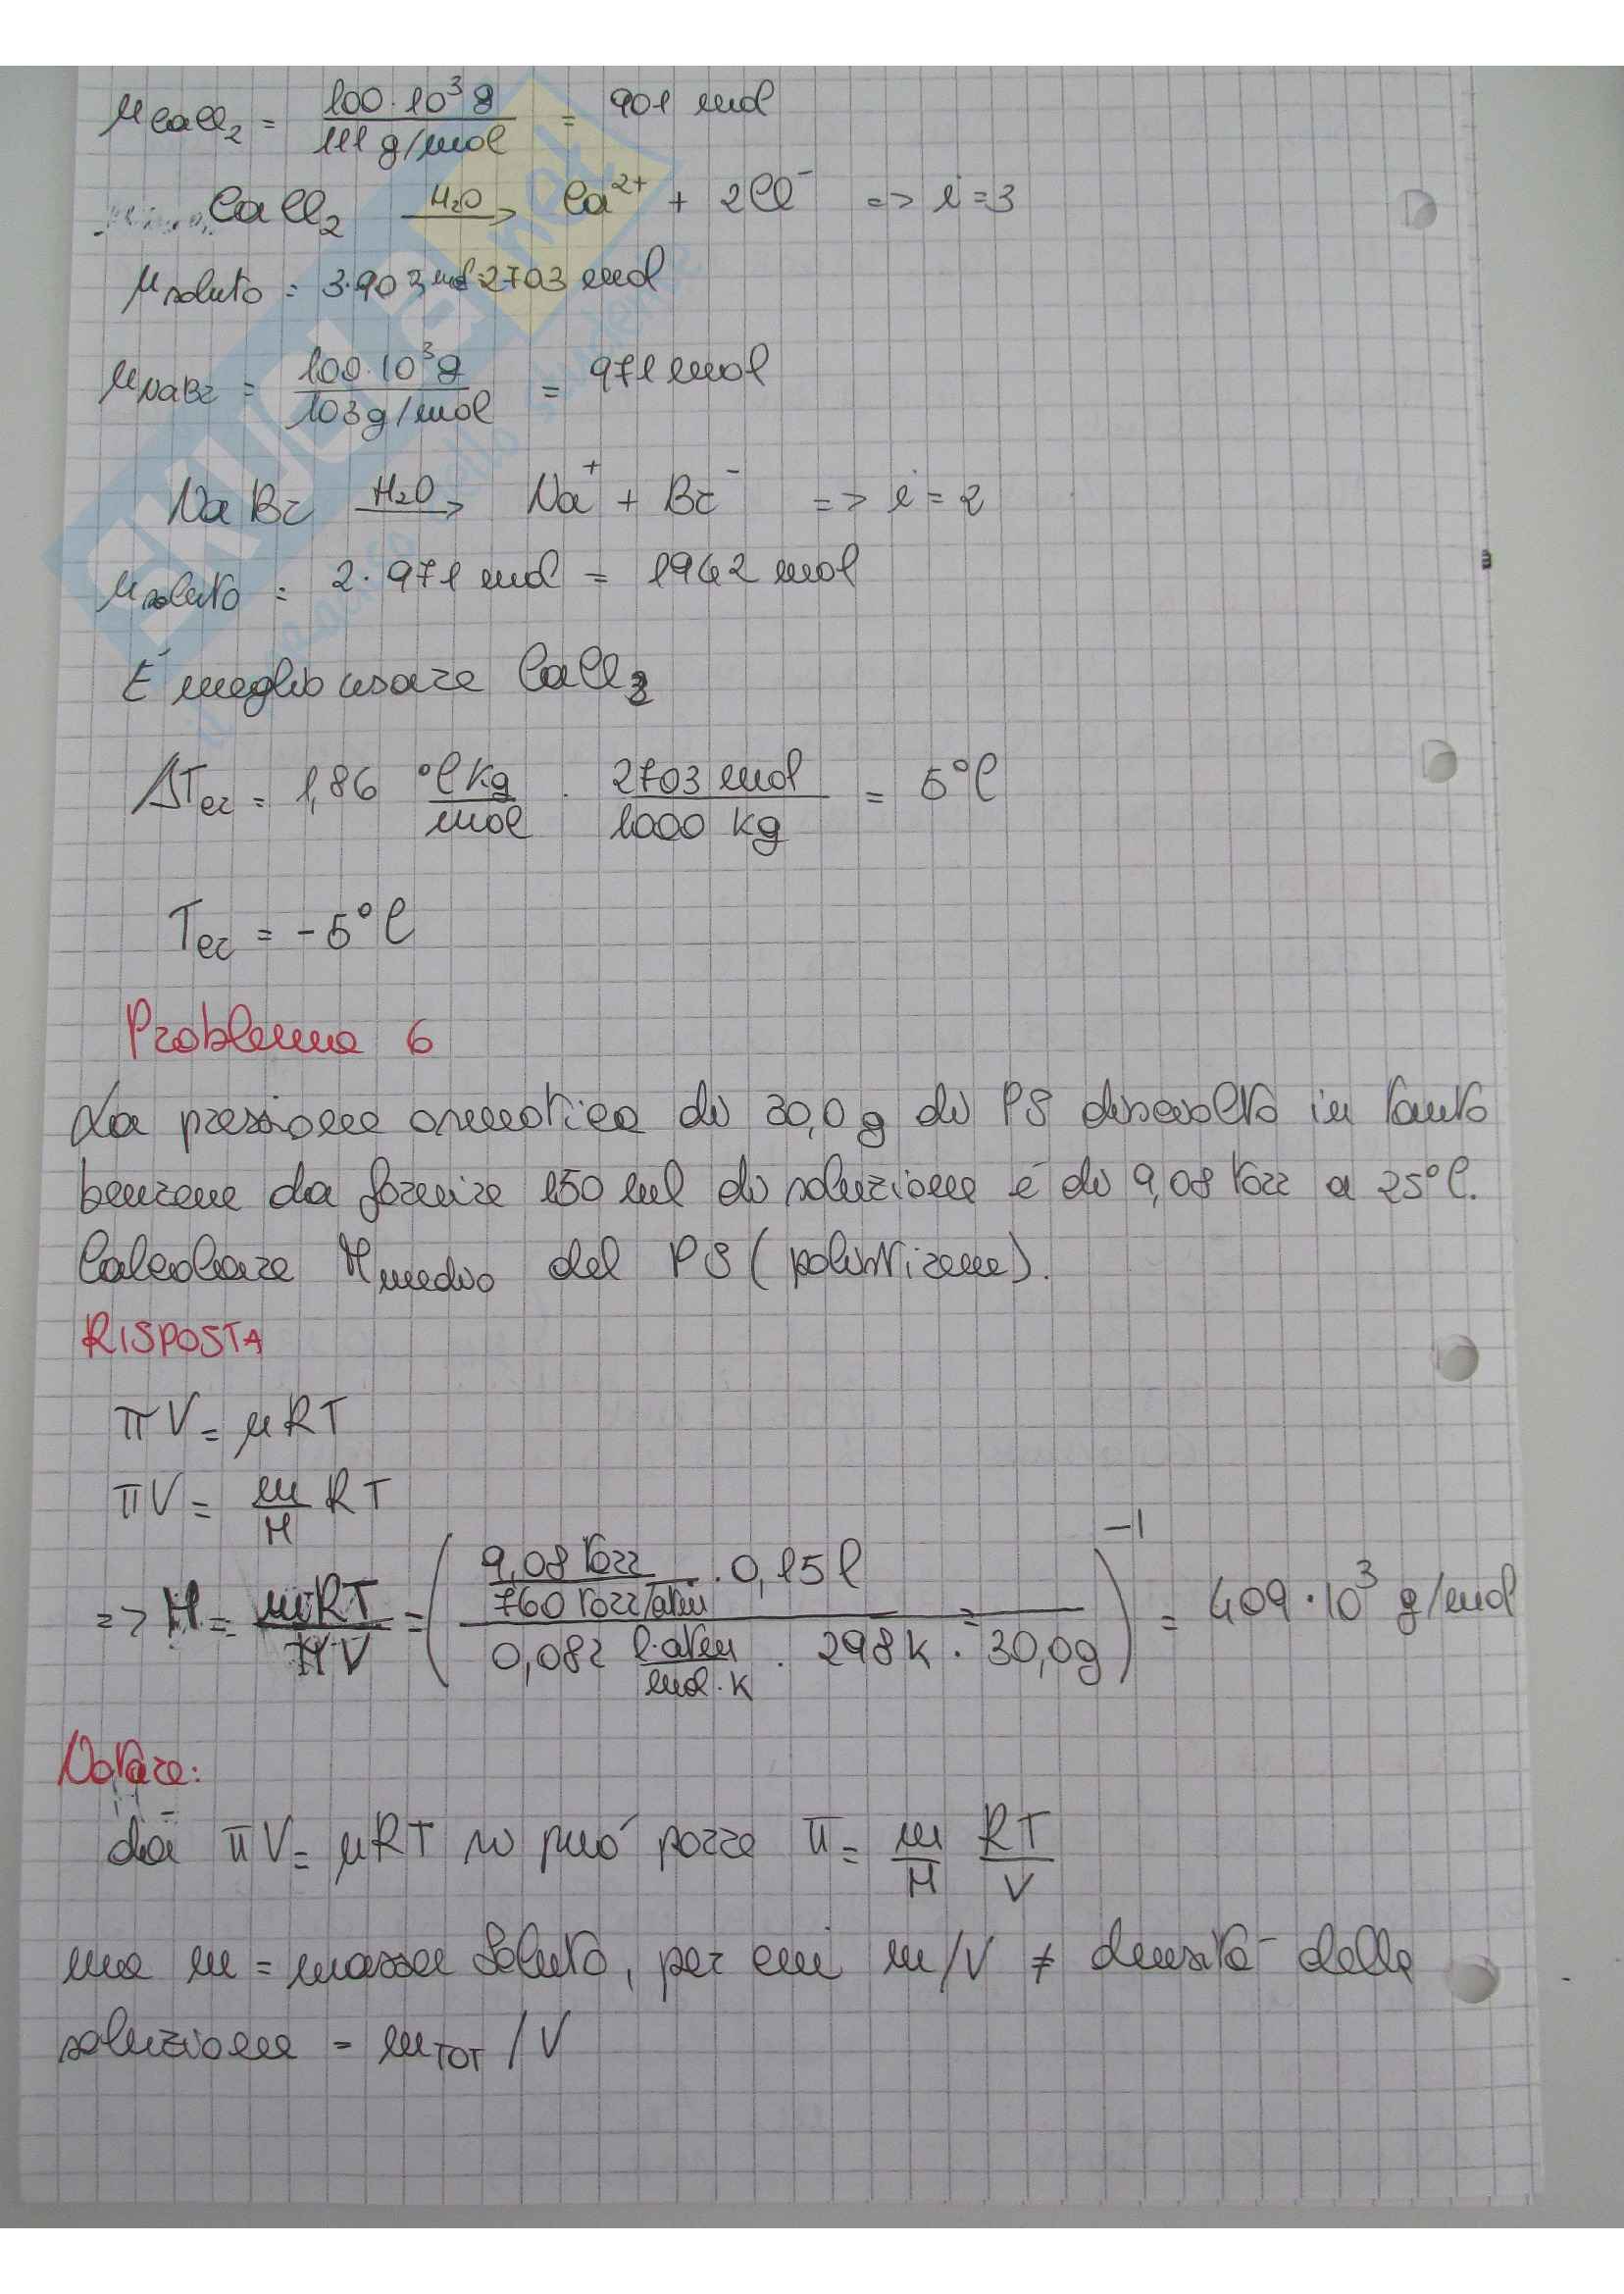 n CaCl₂ = 100·10³ g / 111 g/mol = 901 mol
CaCl₂ —H₂O→ Ca²⁺ + 2Cl⁻ => i=3
n soluto = 3·901 mol = 2703 mol
n NaBr = 100·10³ g / 103 g/mol = 971 mol
NaBr —H₂O→ Na⁺ + Br⁻ => i = 2
n soluto = 2·971 mol = 1942 mol
É meglio usare CaCl₂
ΔTcr = 1,86 °C Kg/mol · 2703 mol/1000 Kg = 5°C
Tcr = -5°C
Problema 6
La pressione osmotica di 30,0 g di PS disciolto in tanto
benzene da fornire 150 ml di soluzione é di 9,08 torr a 25°C.
Calcolare Mmedio del PS (polistirene).
RISPOSTA
πV = nRT
πV = m/M RT
=> M = mRT/πV = ( 9,08 torr / 760 torr/atm · 0,15 l / 0,082 l·atm/mol·K · 298 K · 30,0g )⁻¹ = 409·10³ g/mol
Notare:
da πV = nRT si puó porre π = m/M RT/V
ma m = massa soluto, per cui m/V ≠ densitá della
soluzione = mTOT/V